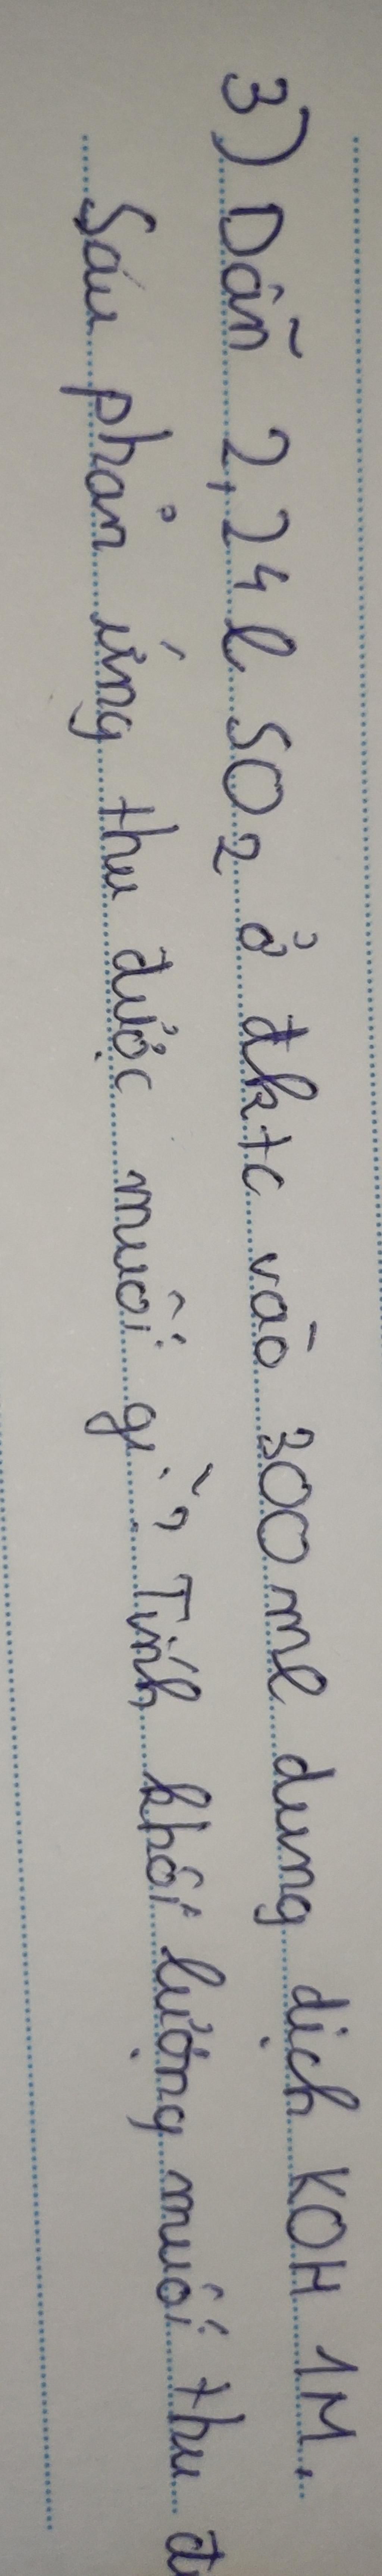 3) Dẫn 2,24 l SO2 ở đktc vào 300 ml dung dịch KOH 1M.
Sau phản ứng thu được muối gì? Tính khối lượng muối thu